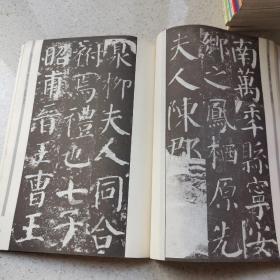 南萬年縣寧安
鄉之鳳栖原先
夫人陳郡
泉柳夫人同合
祔焉禮也七子
昭甫晉王曹王